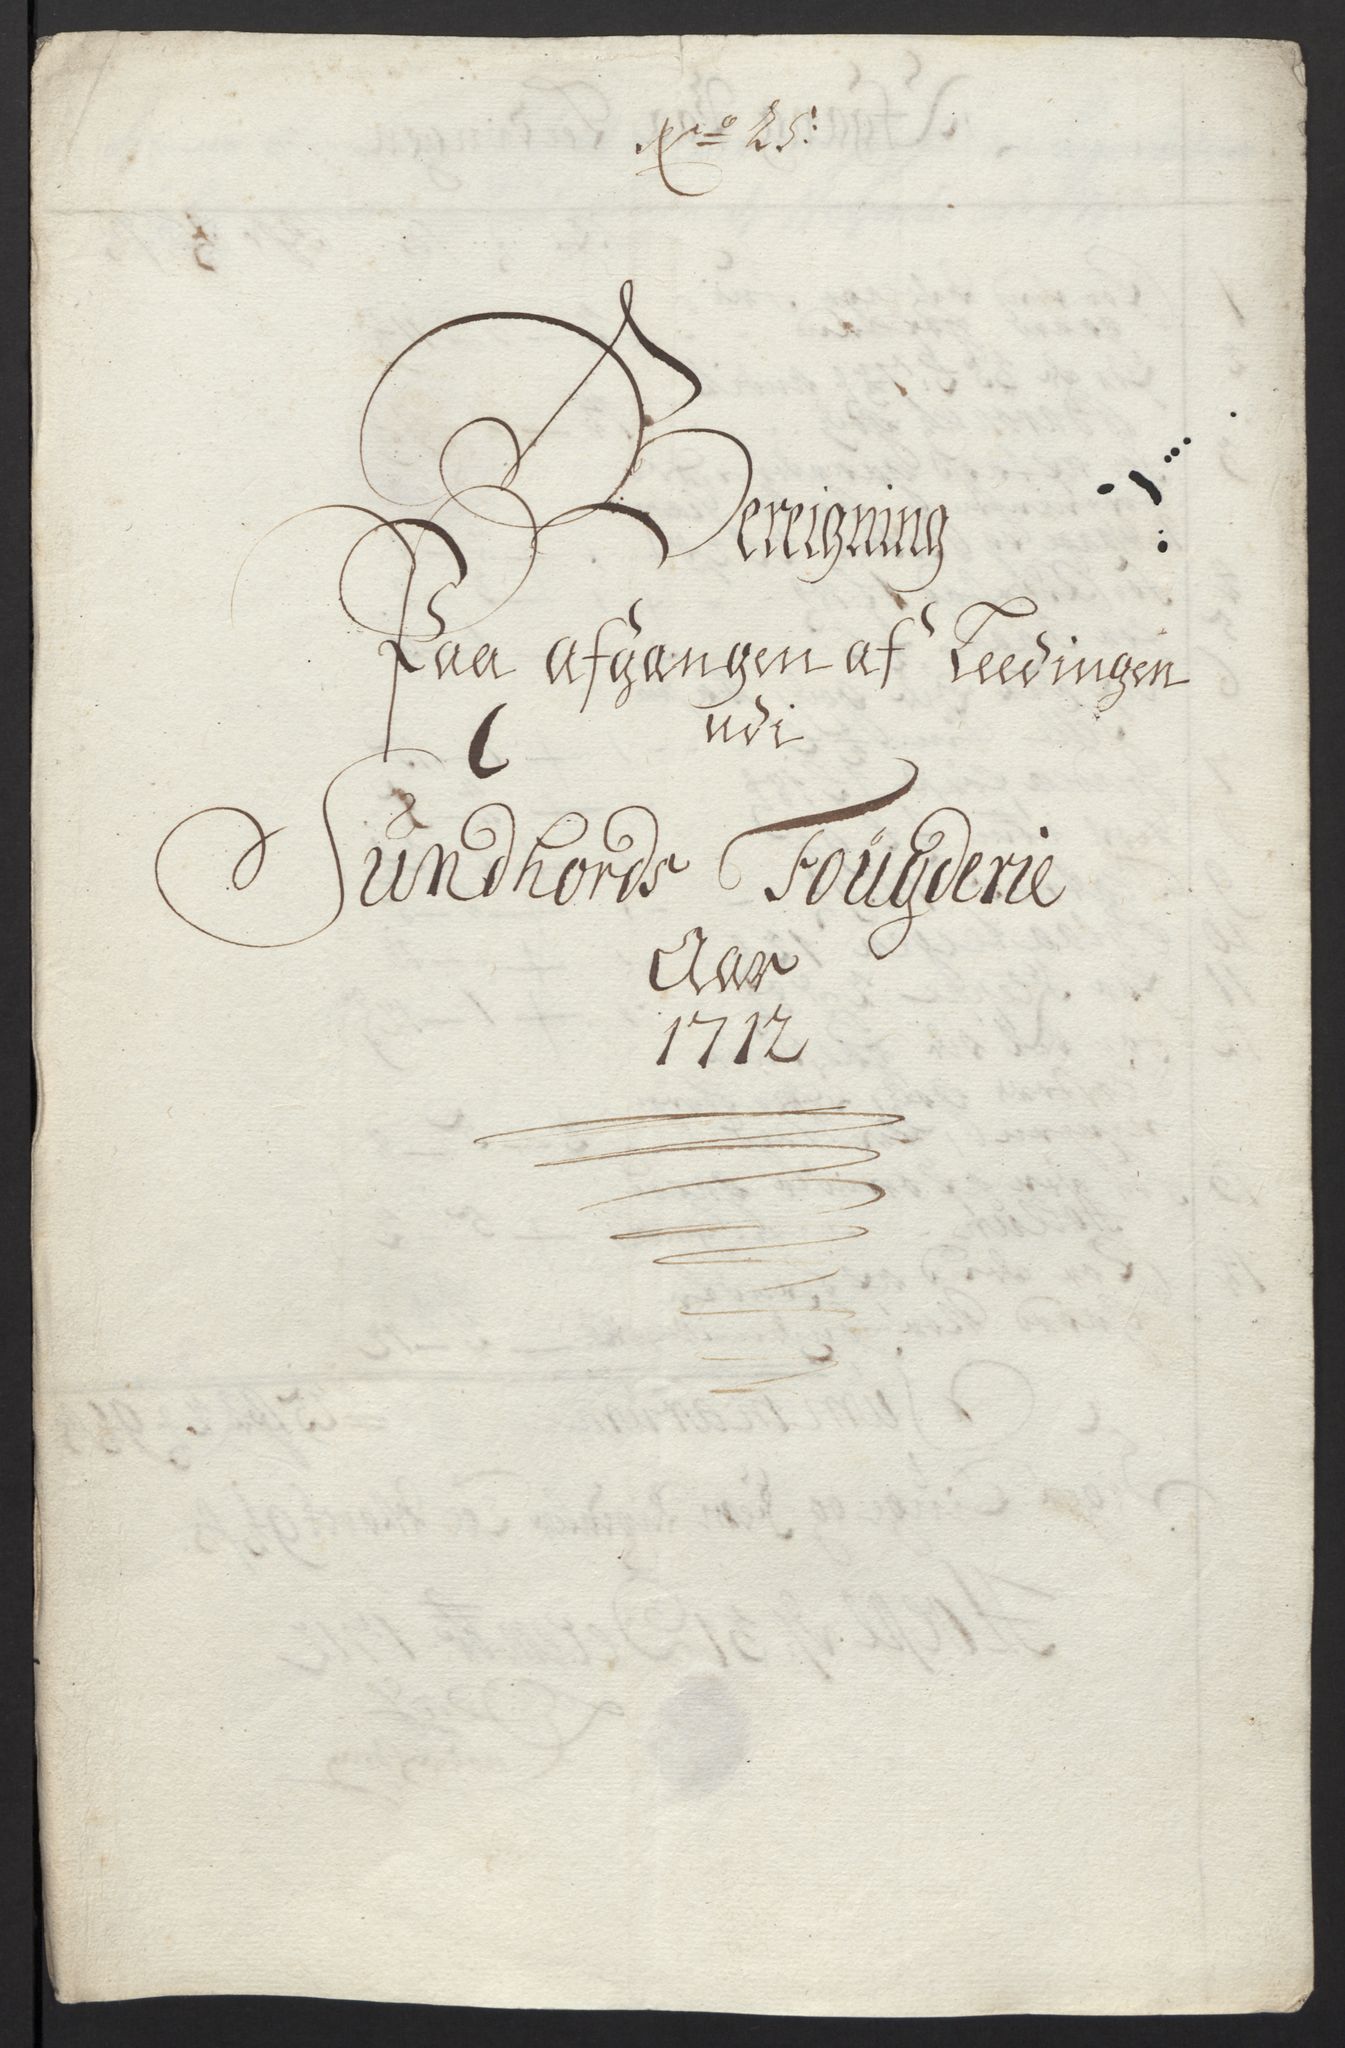 No 25:
Bereigning
Paa afgangen af Leedingen
udi
Sundhords Fougderie
Aar
1712